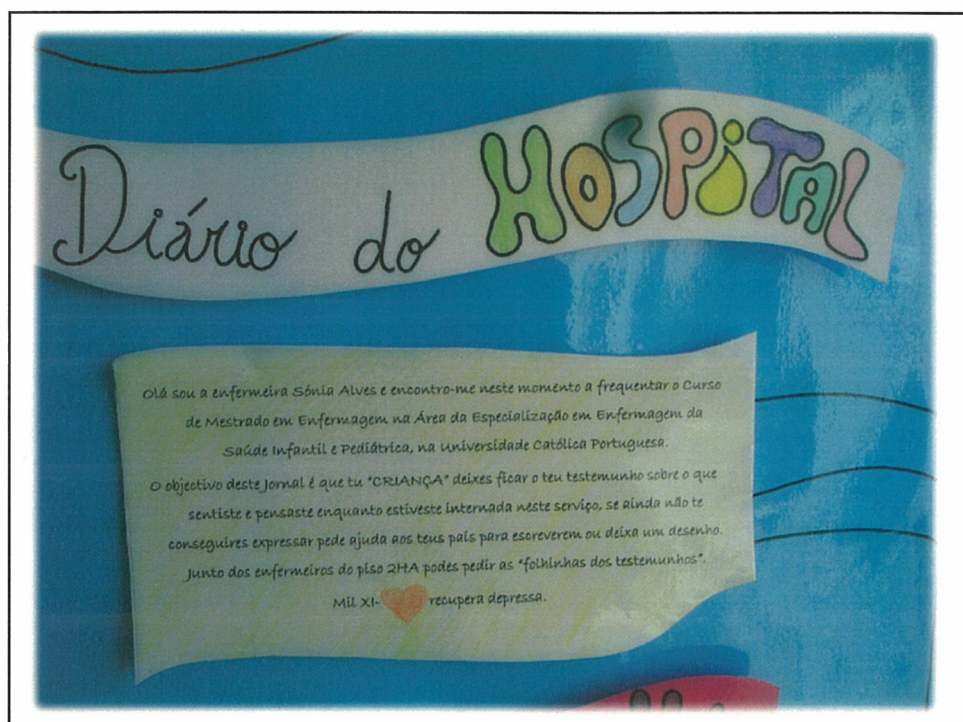 Diário do HOSPITAL
Olá sou a enfermeira Sónia Alves e encontro-me neste momento a frequentar o Curso
de Mestrado em Enfermagem na Área da Especialização em Enfermagem da
Saúde Infantil e Pediátrica, na Universidade Católica Portuguesa.
O objectivo deste Jornal é que tu "CRIANÇA" deixes ficar o teu testemunho sobre o que
sentiste e pensaste enquanto estiveste internada neste serviço, se ainda não te
conseguires expressar pede ajuda aos teus pais para escreverem ou deixa um desenho.
Junto dos enfermeiros do piso 2HA podes pedir as "folhinhas dos testemunhos".
Mil XI- recupera depressa.